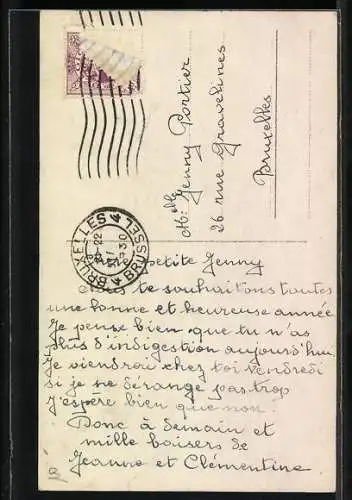 BRUXELLES
BRUSSEL
21-22
1930
Mlle Jenny Portier
26 rue Gravelines
Bruxelles
Ma petite Jenny
Nous te souhaitons toutes
une bonne et heureuse année
Je pense bien que tu n'as
plus d'indigestion aujourd'hui
Je viendrai chez toi vendredi
si je ne dérange pas trop
J'espère bien que non!
Donc à demain et
mille baisers de
Jeanne et Clémentine